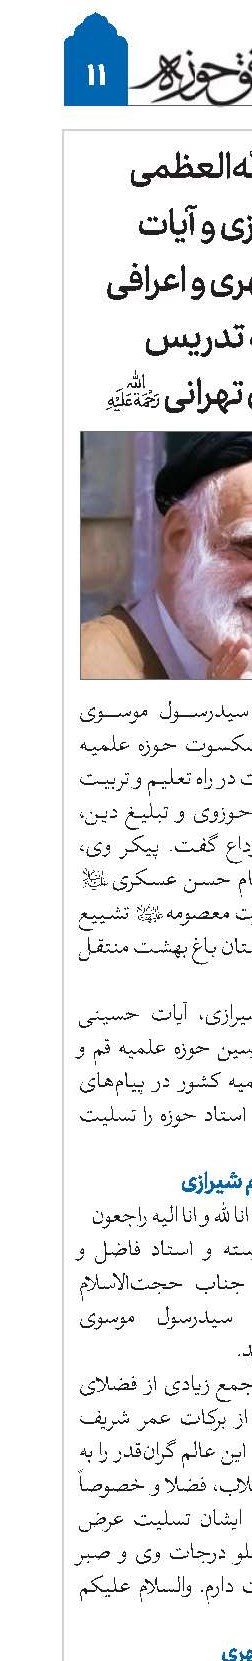 ۱۱
حوزه
العظمی
و آیات
و اعرافی
تدریس
تهرانی رحمةالله‌علیه
سیدرسول موسوی
حوزه علمیه
در راه تعلیم و تربیت
حوزوی و تبلیغ دین،
گفت. پیکر وی،
حسن عسکری
معصومه تشییع
باغ بهشت منتقل
آیات حسینی
حوزه علمیه قم و
کشور در پیام‌های
استاد حوزه را تسلیت
شیرازی
انا لله و انا الیه راجعون
و استاد فاضل و
جناب حجت‌الاسلام
سیدرسول موسوی
جمع زیادی از فضلای
از برکات عمر شریف
این عالم گران‌قدر را به
فضلا و خصوصاً
ایشان تسلیت عرض
درجات وی و صبر
دارم. والسلام علیکم